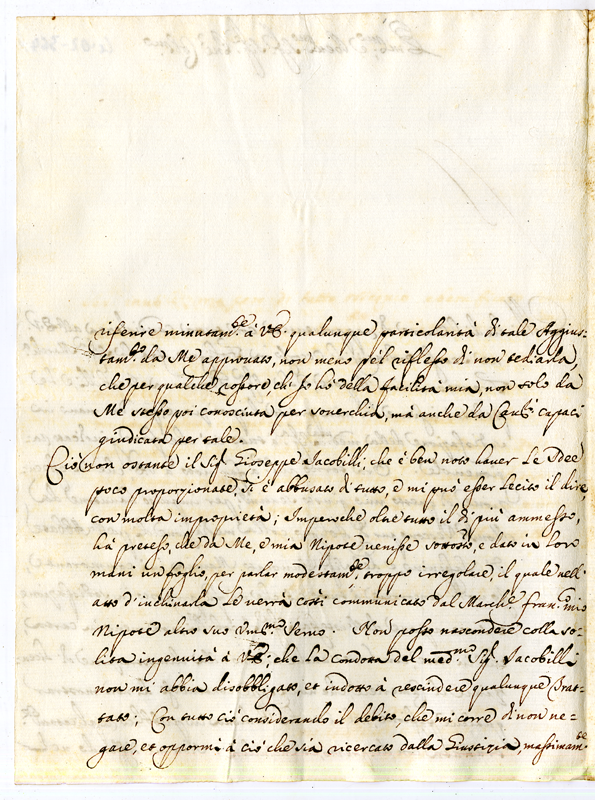 riferire minutam.te à V.E. qualunque particolarità di tale Aggius-
tam.to da Me approvato, non meno pe'l riflesso di non tediarla,
che per qualche rossore, ch'Io hò della facilità mia, non solo da
Me stesso poi conosciuta per soverchia, mà anche da capaci
giudicata per tale.
Ciò non ostante il Sig.r Gioseppe Jacobilli, che è ben noto haver le Idee
poco proporzionate, si è abbusato di tutto, e mi può esser lecito il dire,
con molta improprietà; Imperche oltre tutto il di più ammesso,
hà preteso, che da Me, e mia Nipote venisse sottosto, e dato in loro
mani un foglio, per parlar modestam.te, troppo irregolare, il quale nell'
atto d'inchinarla Le verrà costì communicato dal March.e Fran.co mio
Nipote altro suo Um.mo Servo. Non posso nascondere colla so-
lita ingenuità à V.E., che la condotta del med.mo Sig.r Jacobilli
non mi abbia disobbligato, et indotto à rescindere qualunque Trat-
tato; Con tutto ciò considerando il debito, che mi corre di non ne-
gare, et oppormi à ciò che sia ricercato dalla Giustizia, massimam.te